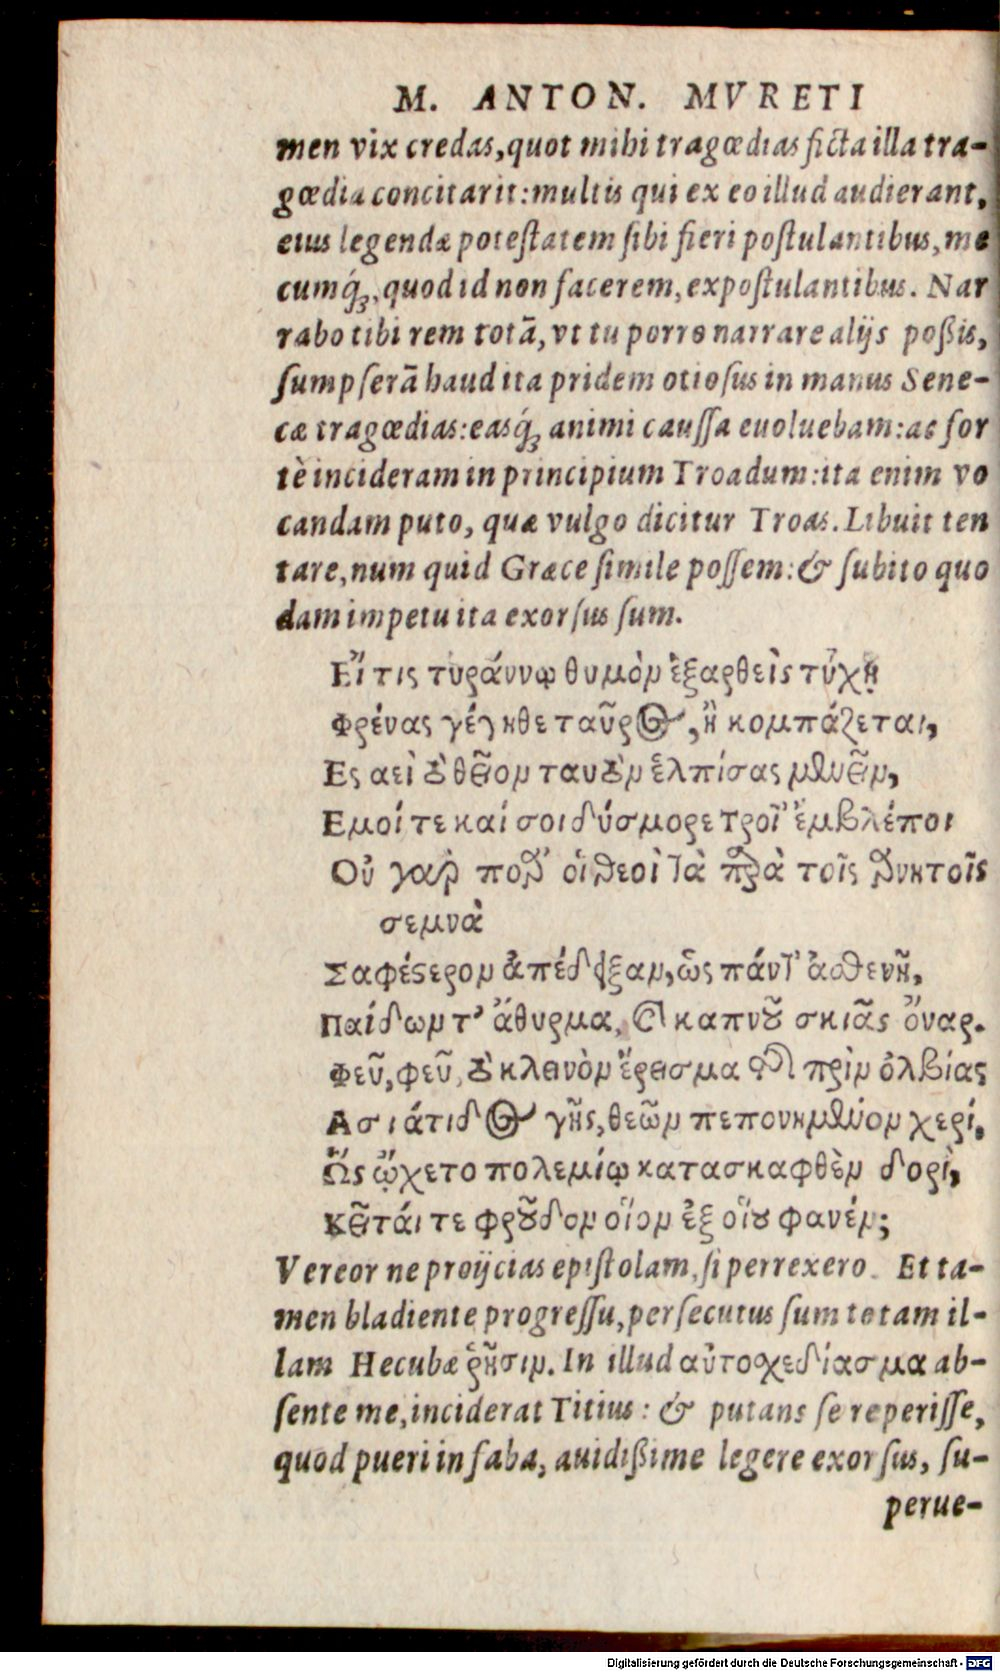 M. ANTON. MVRETI
men vix credas, quot mihi tragœdias ficta illa tra-
gœdia concitarit: multis qui ex eo illud audierant,
eius legendæ potestatem sibi fieri postulantibus, me
cumq́ꝫ, quod id non facerem, expostulantibus. Nar
rabo tibi rem totã, vt tu porro narrare alijs poßis,
sumpserã haud ita pridem otiosus in manus Sene-
cæ tragœdias: easq́ꝫ animi caussa euoluebam: ac for
tè incideram in principium Troadum: ita enim vo
candam puto, quæ vulgo dicitur Troas. Libuit ten
tare, num quid Græce simile possem: & subito quo
dam impetu ita exorsus sum.
Εἴ τις τυράννῳ θυμὸν ἐξαρθεὶς τύχῃ
Φρένας γέγηθε ταῦρος, ἢ κομπάζεται,
Ες αεὶ ὸ θεῖον ταυὸν ἐλπίσας μϑυεῖν,
Εμοί τε καί σοι δύσμορε Τροί' ἐμβλέποι
Οὐ γαρ ποθ' οἱ θεοὶ τὰ παρὰ τοῖς θνητοῖς
σεμνὰ
Σαφέστερον ἀπέδειξαν, ὡς πάντ' ἀσθενῆ,
Παίδων τ' ἄθυρμα, καὶ καπνοῦ σκιᾶς ὄναρ.
Φεῦ, φεῦ, ὸ κλεινὸν ἔρεισμα τῆς πρὶν ὀλβίας
Ασιάτιδος γῆς, θεῶν πεπονημένον χερί,
Ὣς ᾤχετο πολεμίῳ κατασκαφθὲν δορὶ,
Κεῖταί τε φροῦδον οἷον ἐξ οἵου φανέν;
Vereor ne proijcias epistolam, si perrexero. Et ta-
men bladiente progressu, persecutus sum totam il-
lam Hecubæ ῥῆσιν. In illud αὐτοσχεδίασμα ab-
sente me, inciderat Titius: & putans se reperisse,
quod pueri in faba, auidißime legere exorsus, su-
perue-
Digitalisierung gefördert durch die Deutsche Forschungsgemeinschaft - DFG